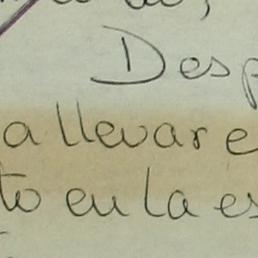 Desp
a llevar e
to en la es